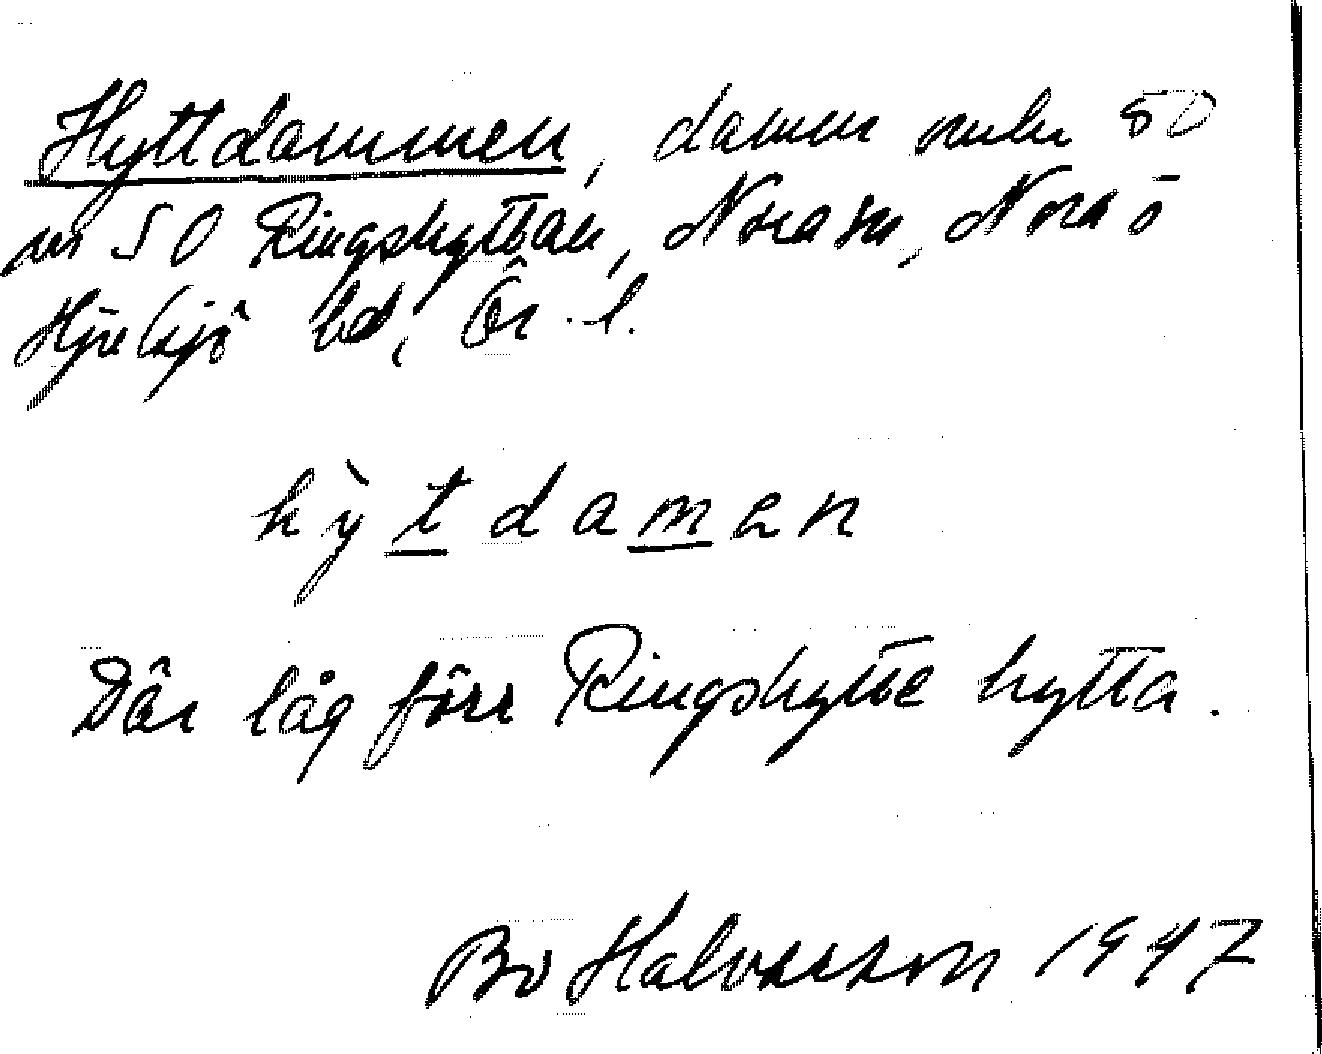 Hyttdammen, dammen under 50
m SO Ringshyttan, Nora sn, Nora o
Hjulsjö bd, Ör. l.
hỳtdamen
Där låg förr Ringshytte hytta.
Bo Halvarsson 1947